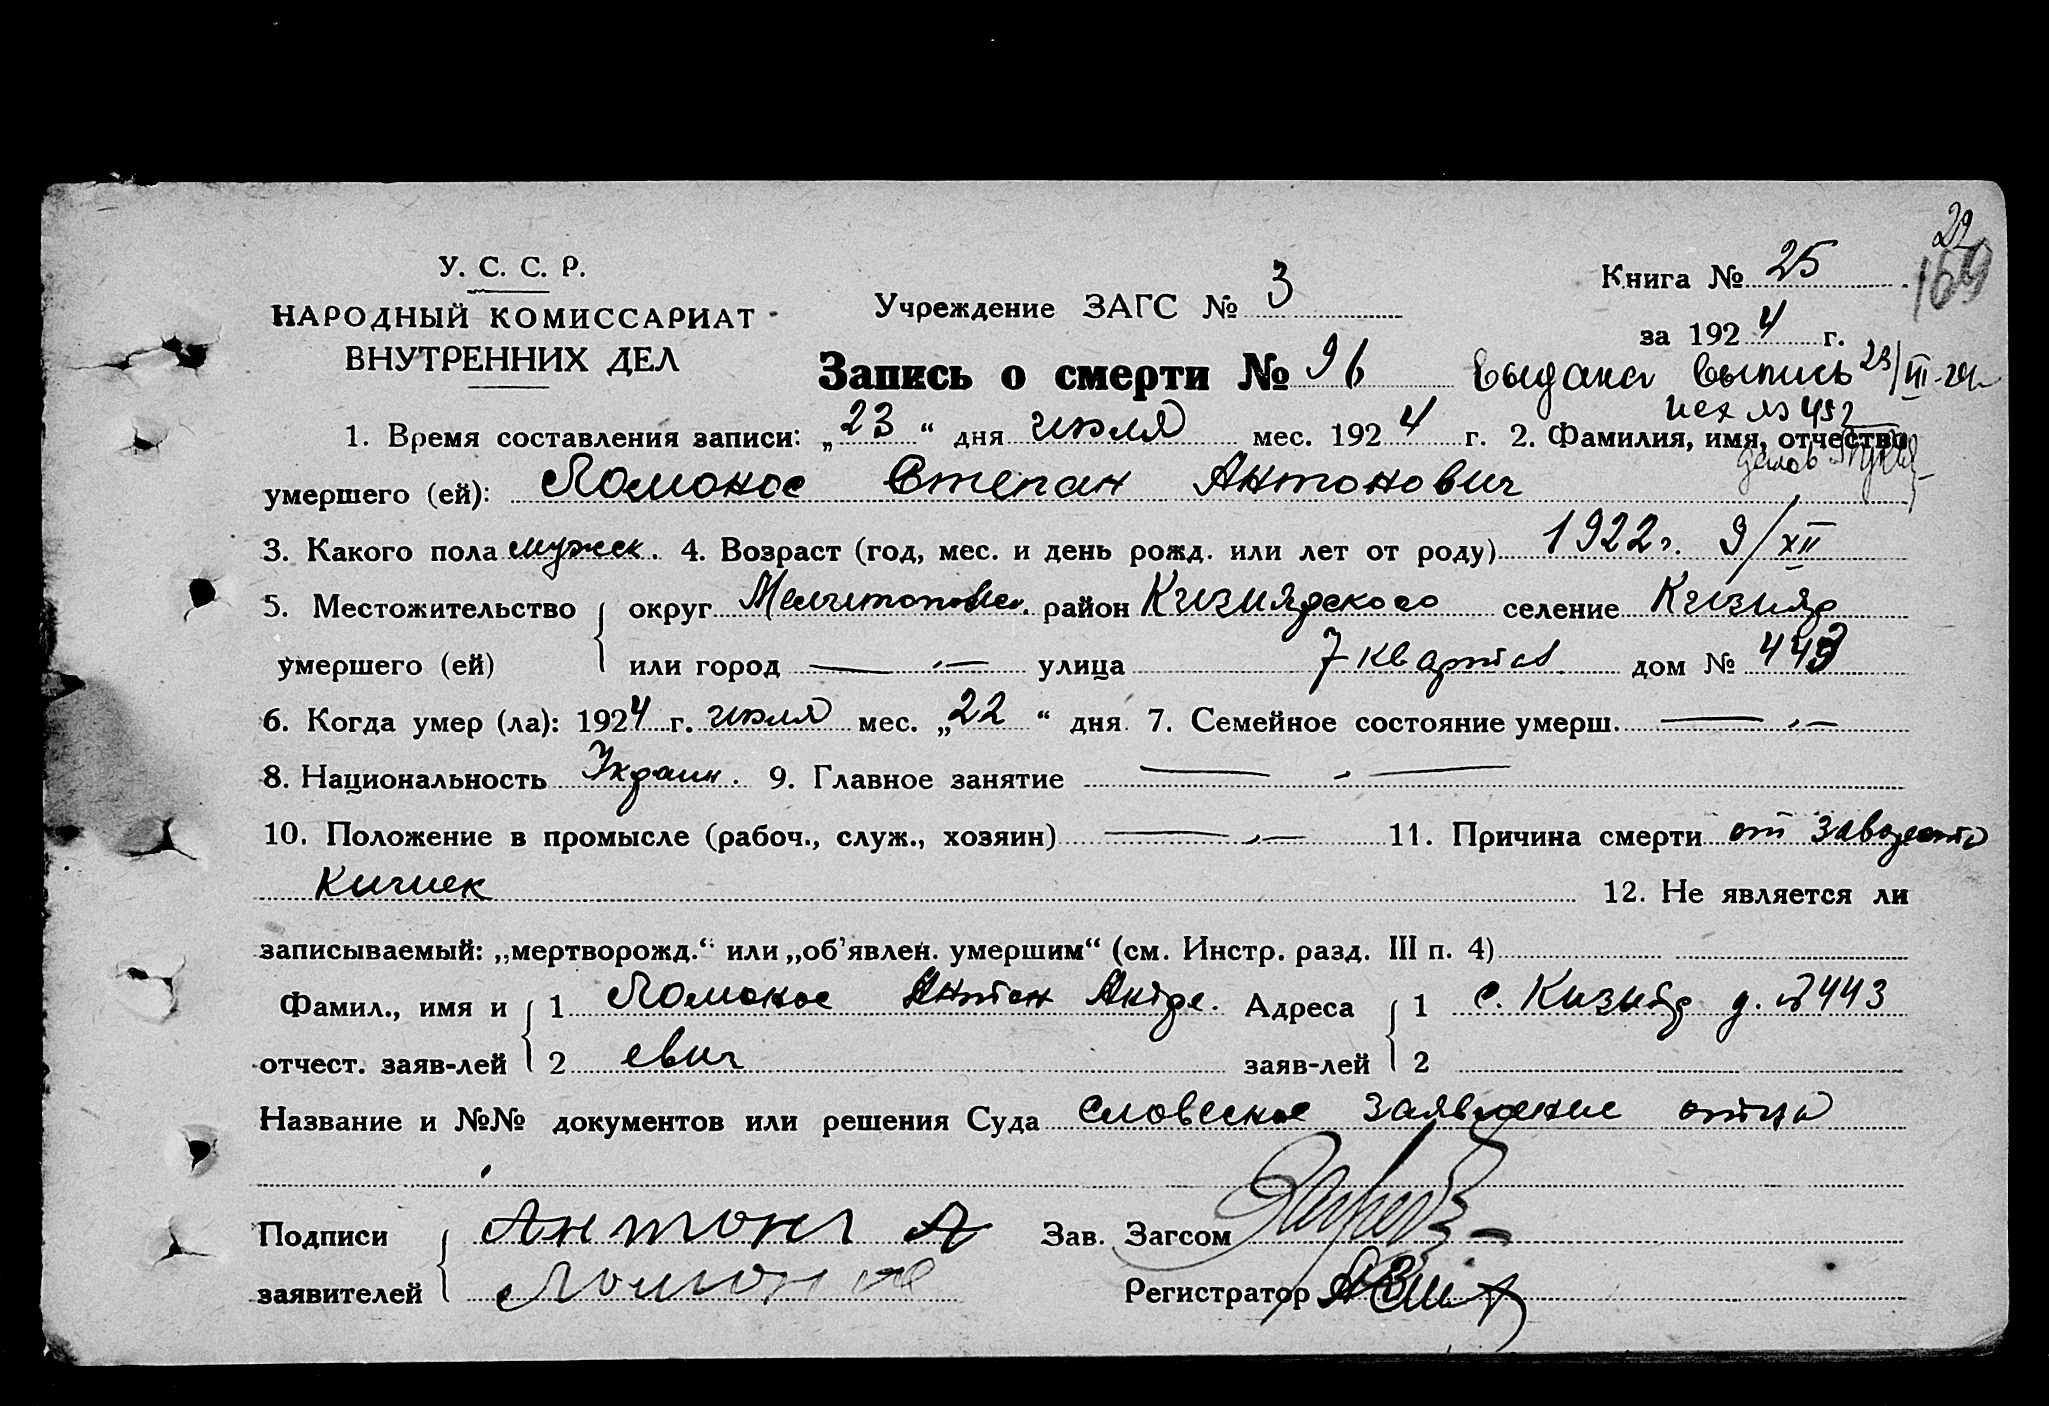 22
169
У. С. С. Р.
НАРОДНЫЙ КОМИССАРИАТ
ВНУТРЕННИХ ДЕЛ
Учреждение ЗАГС № 3
Книга № 25
за 1924 г.
Запись о смерти № 96
Выдана выпись 23/III-24
исх № 452
1. Время составления записи: „23“ дня июля мес. 1924 г. 2. Фамилия, имя, отчество
умершего (ей): Ломонос Степан Антонович
3. Какого пола мужск. 4. Возраст (год, мес. и день рожд. или лет от роду) 1922 г. 9/XII
5. Местожительство округ Мелитопольск. район Кизиярского селение Кизияр
умершего (ей) или город — улица 7 квартал дом № 443
6. Когда умер (ла): 1924 г. июля мес. „22“ дня 7. Семейное состояние умерш. —
8. Национальность Украин. 9. Главное занятие —
10. Положение в промысле (рабоч., служ., хозяин) — 11. Причина смерти от
Кишек
12. Не является ли
записываемый: „мертворожд.“ или „об'явлен. умершим“ (см. Инстр. разд. III п. 4)
Фамил., имя и 1 Ломонос Антон Андре. Адреса 1 с. Кизияр д. № 443
отчест. заяв-лей 2 евич заяв-лей 2
Название и №№ документов или решения Суда словесное заявление отца
Подписи Антон А Зав. Загсом
заявителей Ломонос Регистратор